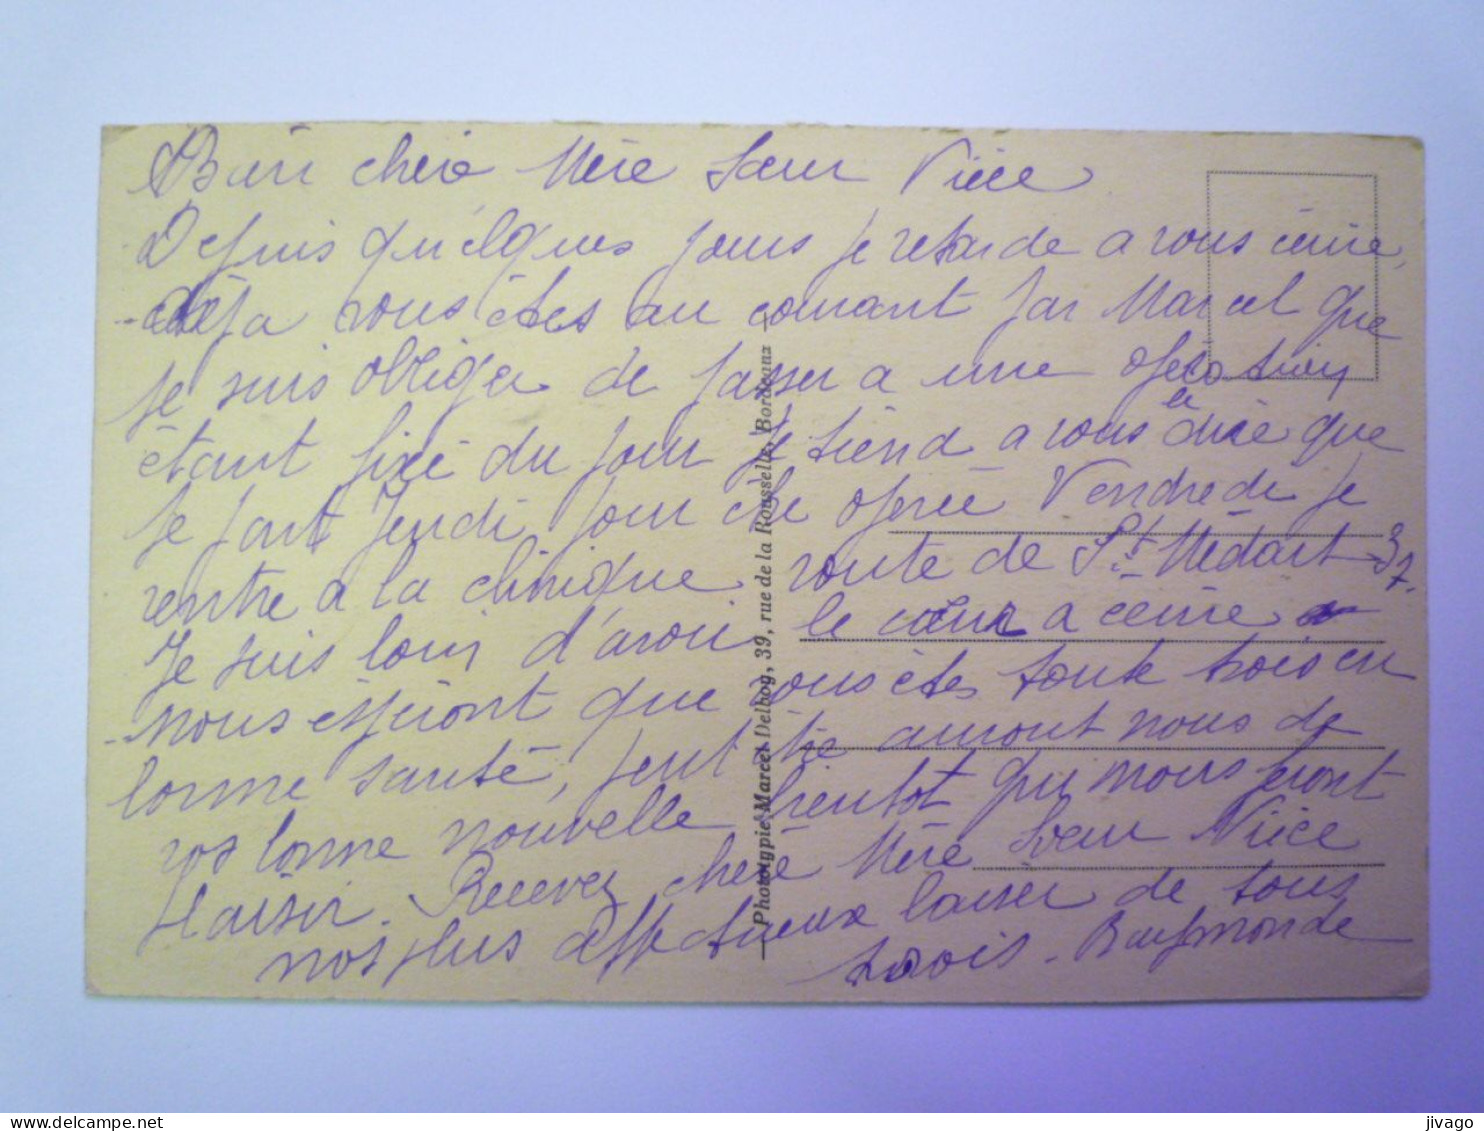 Bien chère Mère Sœur Nièce
Depuis quélques jours je retarde a vous écrire,
déja vous étes au courant par Marcel que
je suis obliger de passer a une opération
étant fixé du jour je tiend a vous le dire que
je part Jeudi pour etre operée Vendredi je
rentre a la clinique route de St. Médart 37.
Je suis loin d'avoir le cœur a écrire
nous éspéront que vous étes toute trois en
bonne santé, peut être auront nous de
vos bonne nouvelle bientot qui nous feront
plaisir. Recevez chère Mère Sœur Nièce
nos plus affectueux baiser de tous
trois - Raymonde
Phototypie Marcel Delboy, 39, rue de la Rousselle, Bordeaux
delcampe.net
jivago